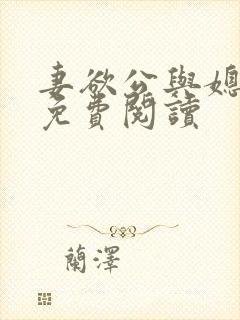 妻欲公與媳
免費閱讀
蘭澤